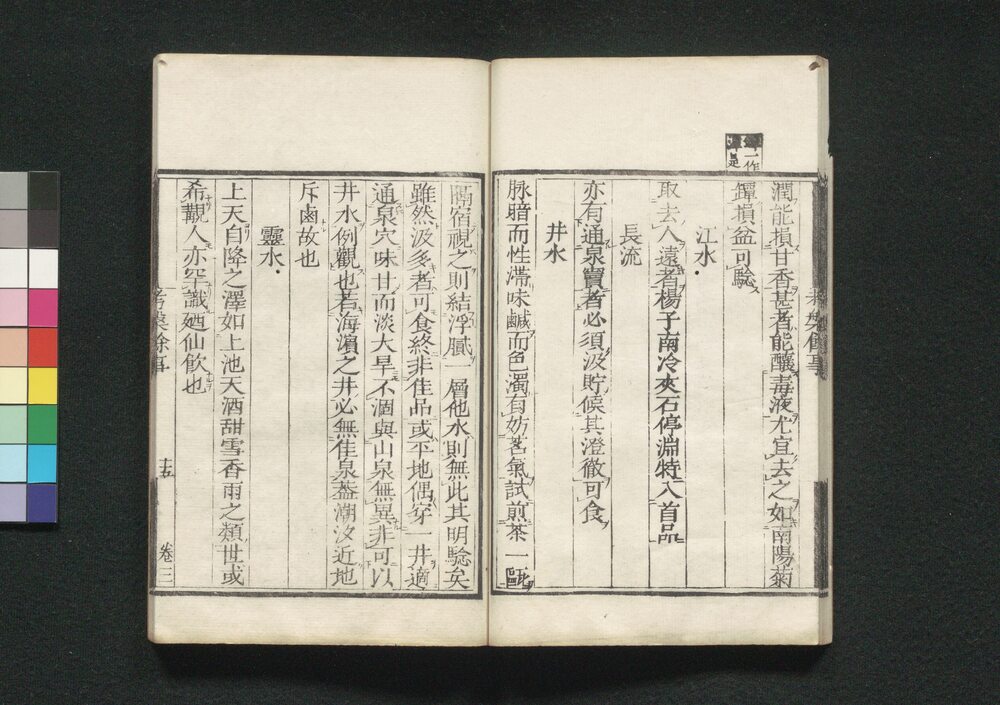 考槃餘事
潤能損甘香甚者能釀毒液尤宜去之如南陽菊
潭損盆可驗
江水
取去人遠者楊子南冷夾石停淵特入首品
長流
亦有通泉竇者必須汲貯候其澄徹可食
井水
脉暗而性滯味鹹而色濁有妨茗氣試煎茶一甌
隔宿視之則結浮膩一層他水則無此其明驗矣
雖然汲多者可食終非佳品或平地偶穿一井適
通泉穴味甘而淡大旱不涸與山泉無異非可以
井水例觀也若海濱之井必無佳泉葢潮汐近地
斥鹵故也
靈水
上天自降之澤如上池天酒甜雪香雨之類世或
希覯人亦罕識廼仙飲也
考槃餘事
十五
卷三